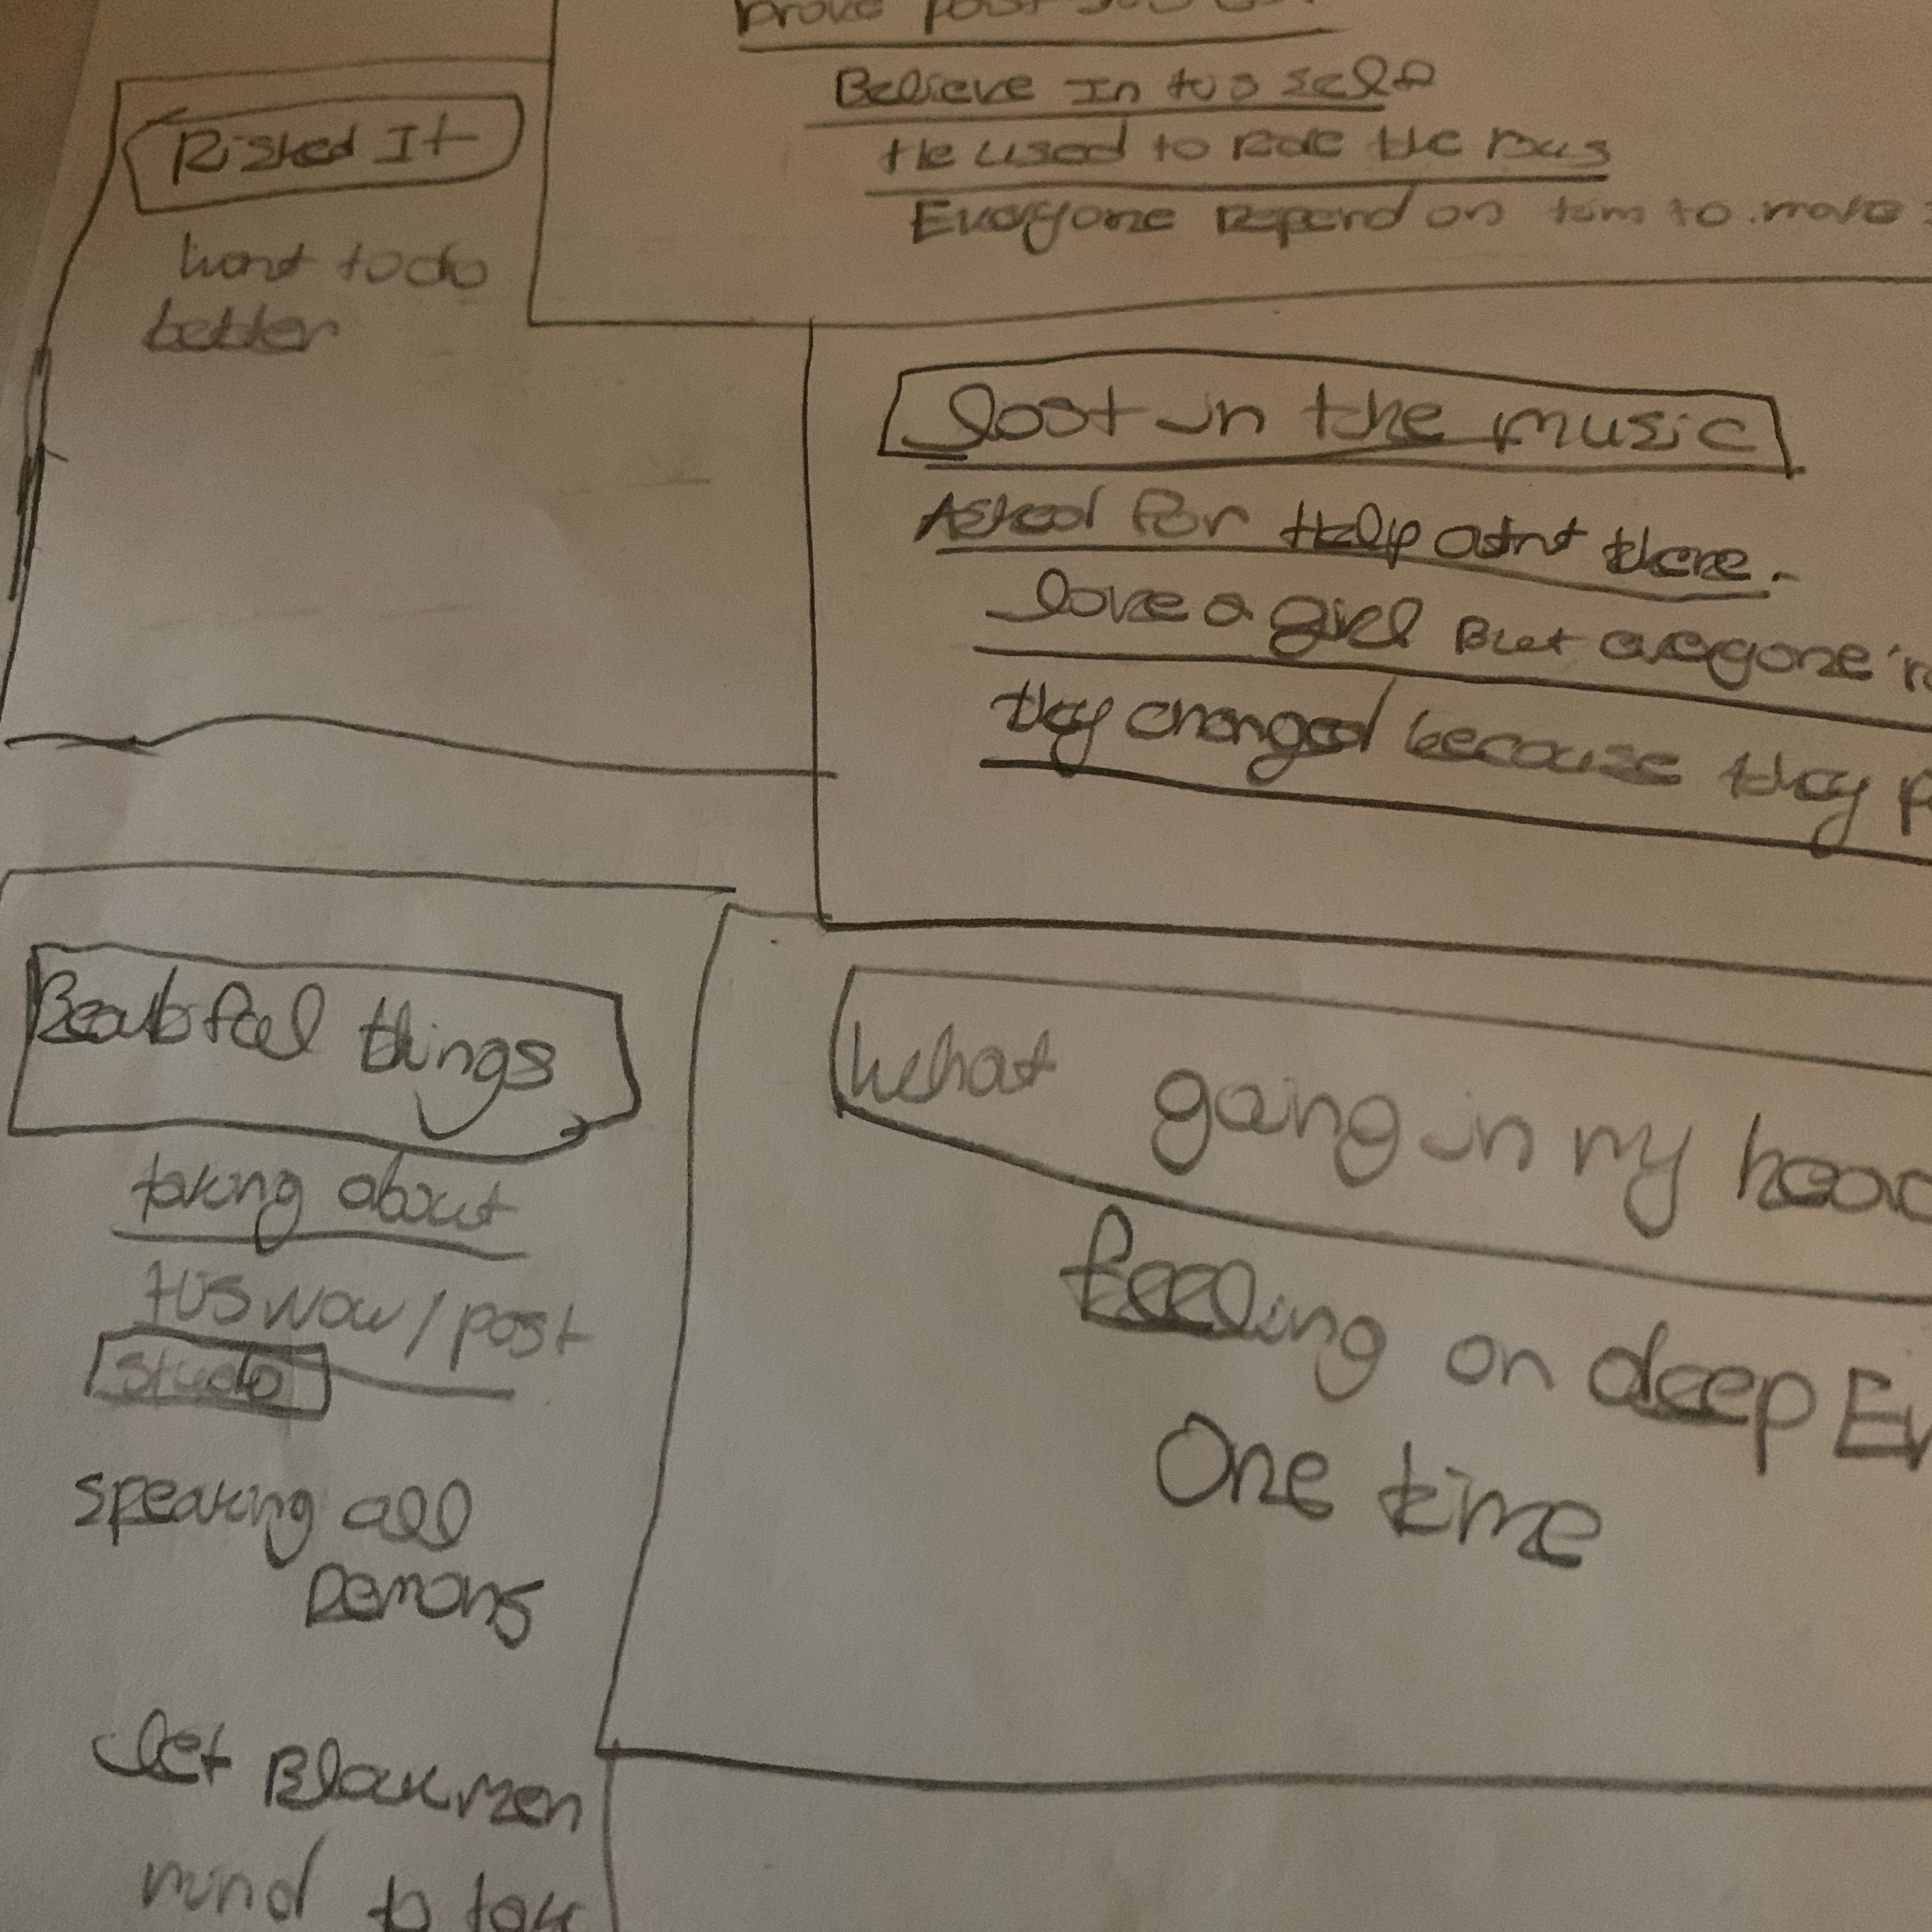 Risked It
want to do
better
prove past
Believe In his self
He used to Ride the Bus
Everyone Depend on him to make
lost in the music
Asked for Help aint there.
love a girl But
they changed because they
Beautiful things
taking about
his now / past
studo
speaking all
Demons
let Blackmen
mind to talk
What going in my head
feeling on deep
One time